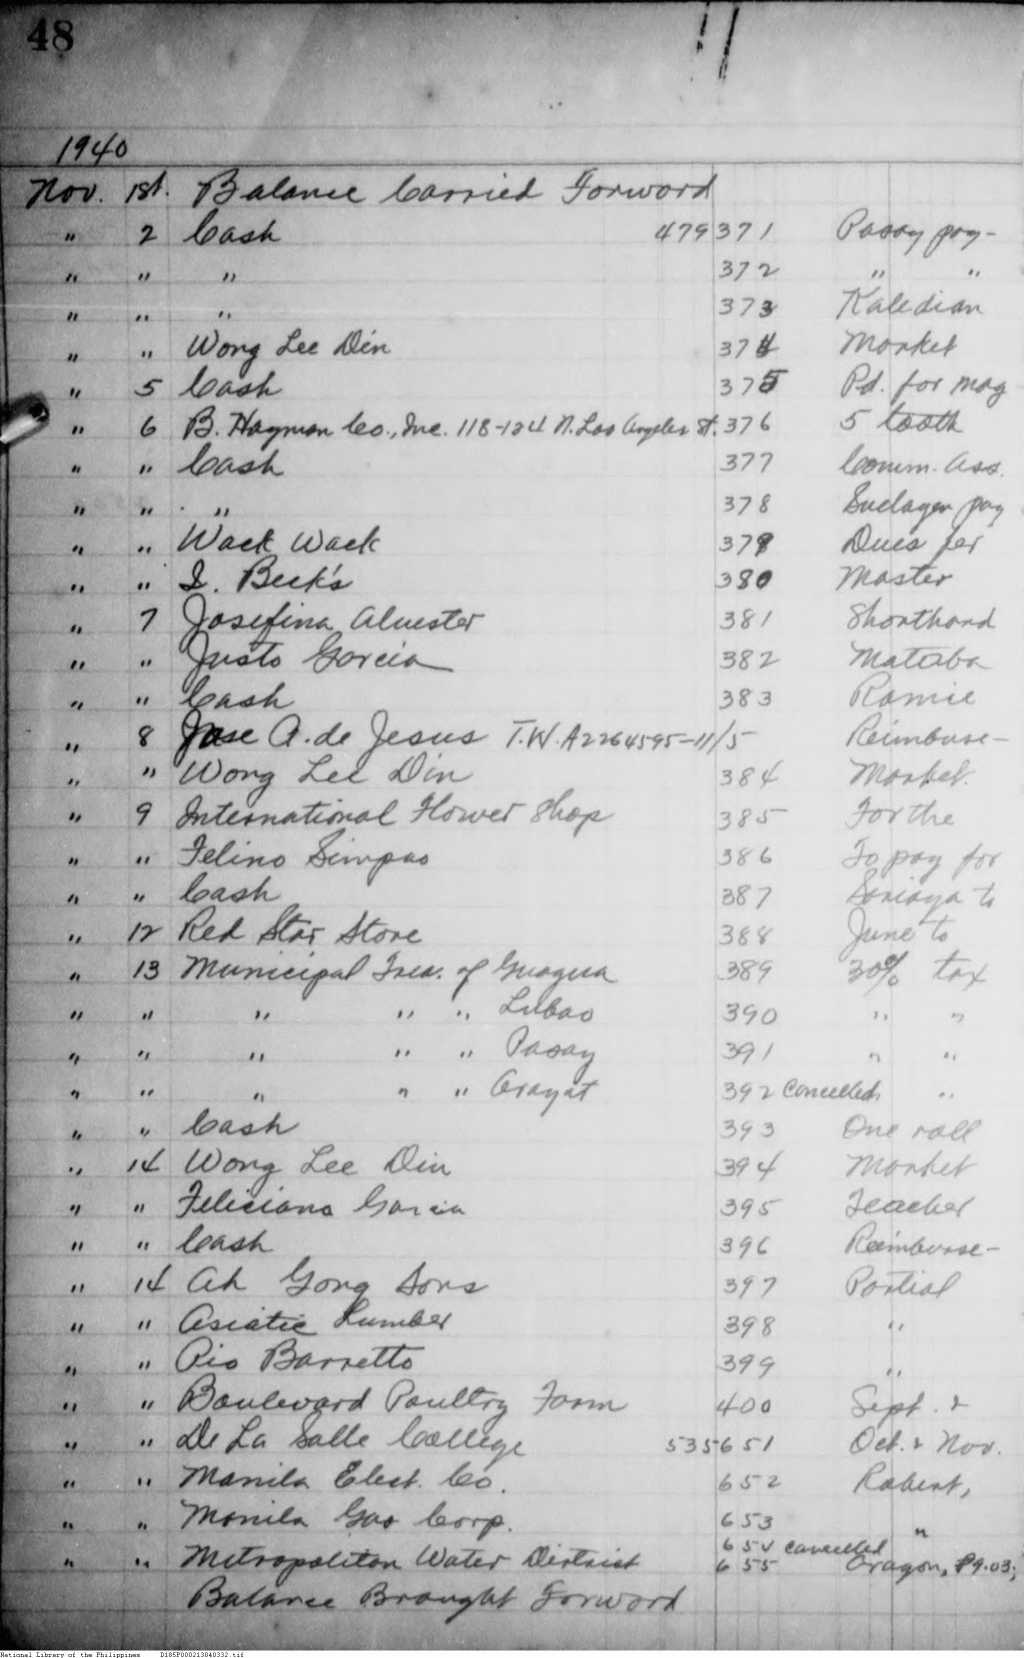 48
1940
Nov. 1st. Balance Carried Forward
" 2 Cash 479371 Pasay pay-
" " " 372 " "
" " " 373 Kaledian
" " Wong Lee Din 374 Market
" 5 Cash 375 Pd. for mag
" 6 B. Hayman Co., Inc. 118-124 N. Los Angeles St. 376 5 tooth
" " Cash 377 Comm. Ass.
" " " 378 Sudagen pay
" " Wack Wack 379 Dues for
" " I. Beck's 380 Master
" 7 Josefina Aluester 381 Shorthand
" " Justo Garcia 382 Matuba
" " Cash 383 Ramie
" 8 Jose A. de Jesus T.W. A2264595-11/5 Reimburse-
" " Wong Lee Din 384 Market.
" 9 International Flower Shop 385 For the
" " Felino Simpao 386 To pay for
" " Cash 387 Sariaya to
" 12 Red Star Store 388 June to
" 13 Municipal Trea. of Guagua 389 30% tax
" " " " " Lubao 390 " "
" " " " " Pasay 391 " "
" " " " " Arayat 392 Cancelled "
" " Cash 393 One roll
" 14 Wong Lee Din 394 Market
" " Feliciano Garcia 395 Teacher
" " Cash 396 Reimburse-
" 14 Ah Gong Sons 397 Partial
" " Asiatic Lumber 398 "
" " Pio Barretto 399 "
" " Boulevard Poultry Farm 400 Sept. &
" " De La Salle College 535651 Oct. & Nov.
" " Manila Elect. Co. 652 Robert,
" " Manila Gas Corp. 653 "
654 cancelled
" " Metropolitan Water District 655 Aragon, ₱9.03;
Balance Brought Forward
National Library of the Philippines D185P000213840332.tif